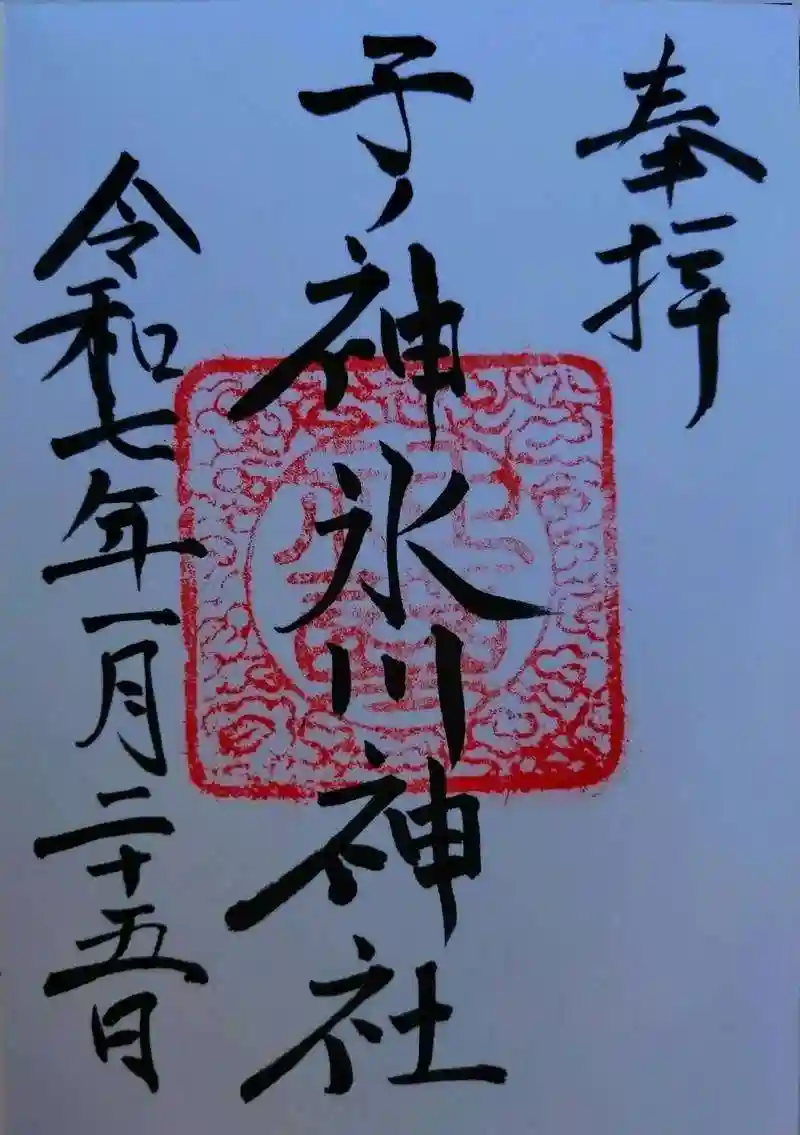 奉拝
子ノ神氷川神社
令和七年一月二十五日